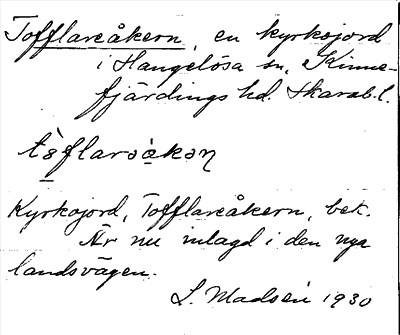 Tofflareåkern, en kyrkojord
i Hangelösa sn, Kinne-
fjärdings hd. Skarab.l.
tòflaråkəɳ
Kyrkojord, Tofflareåkern, bek.
Är nu inlagd i den nya
landsvägen.
L. Madsén 1930